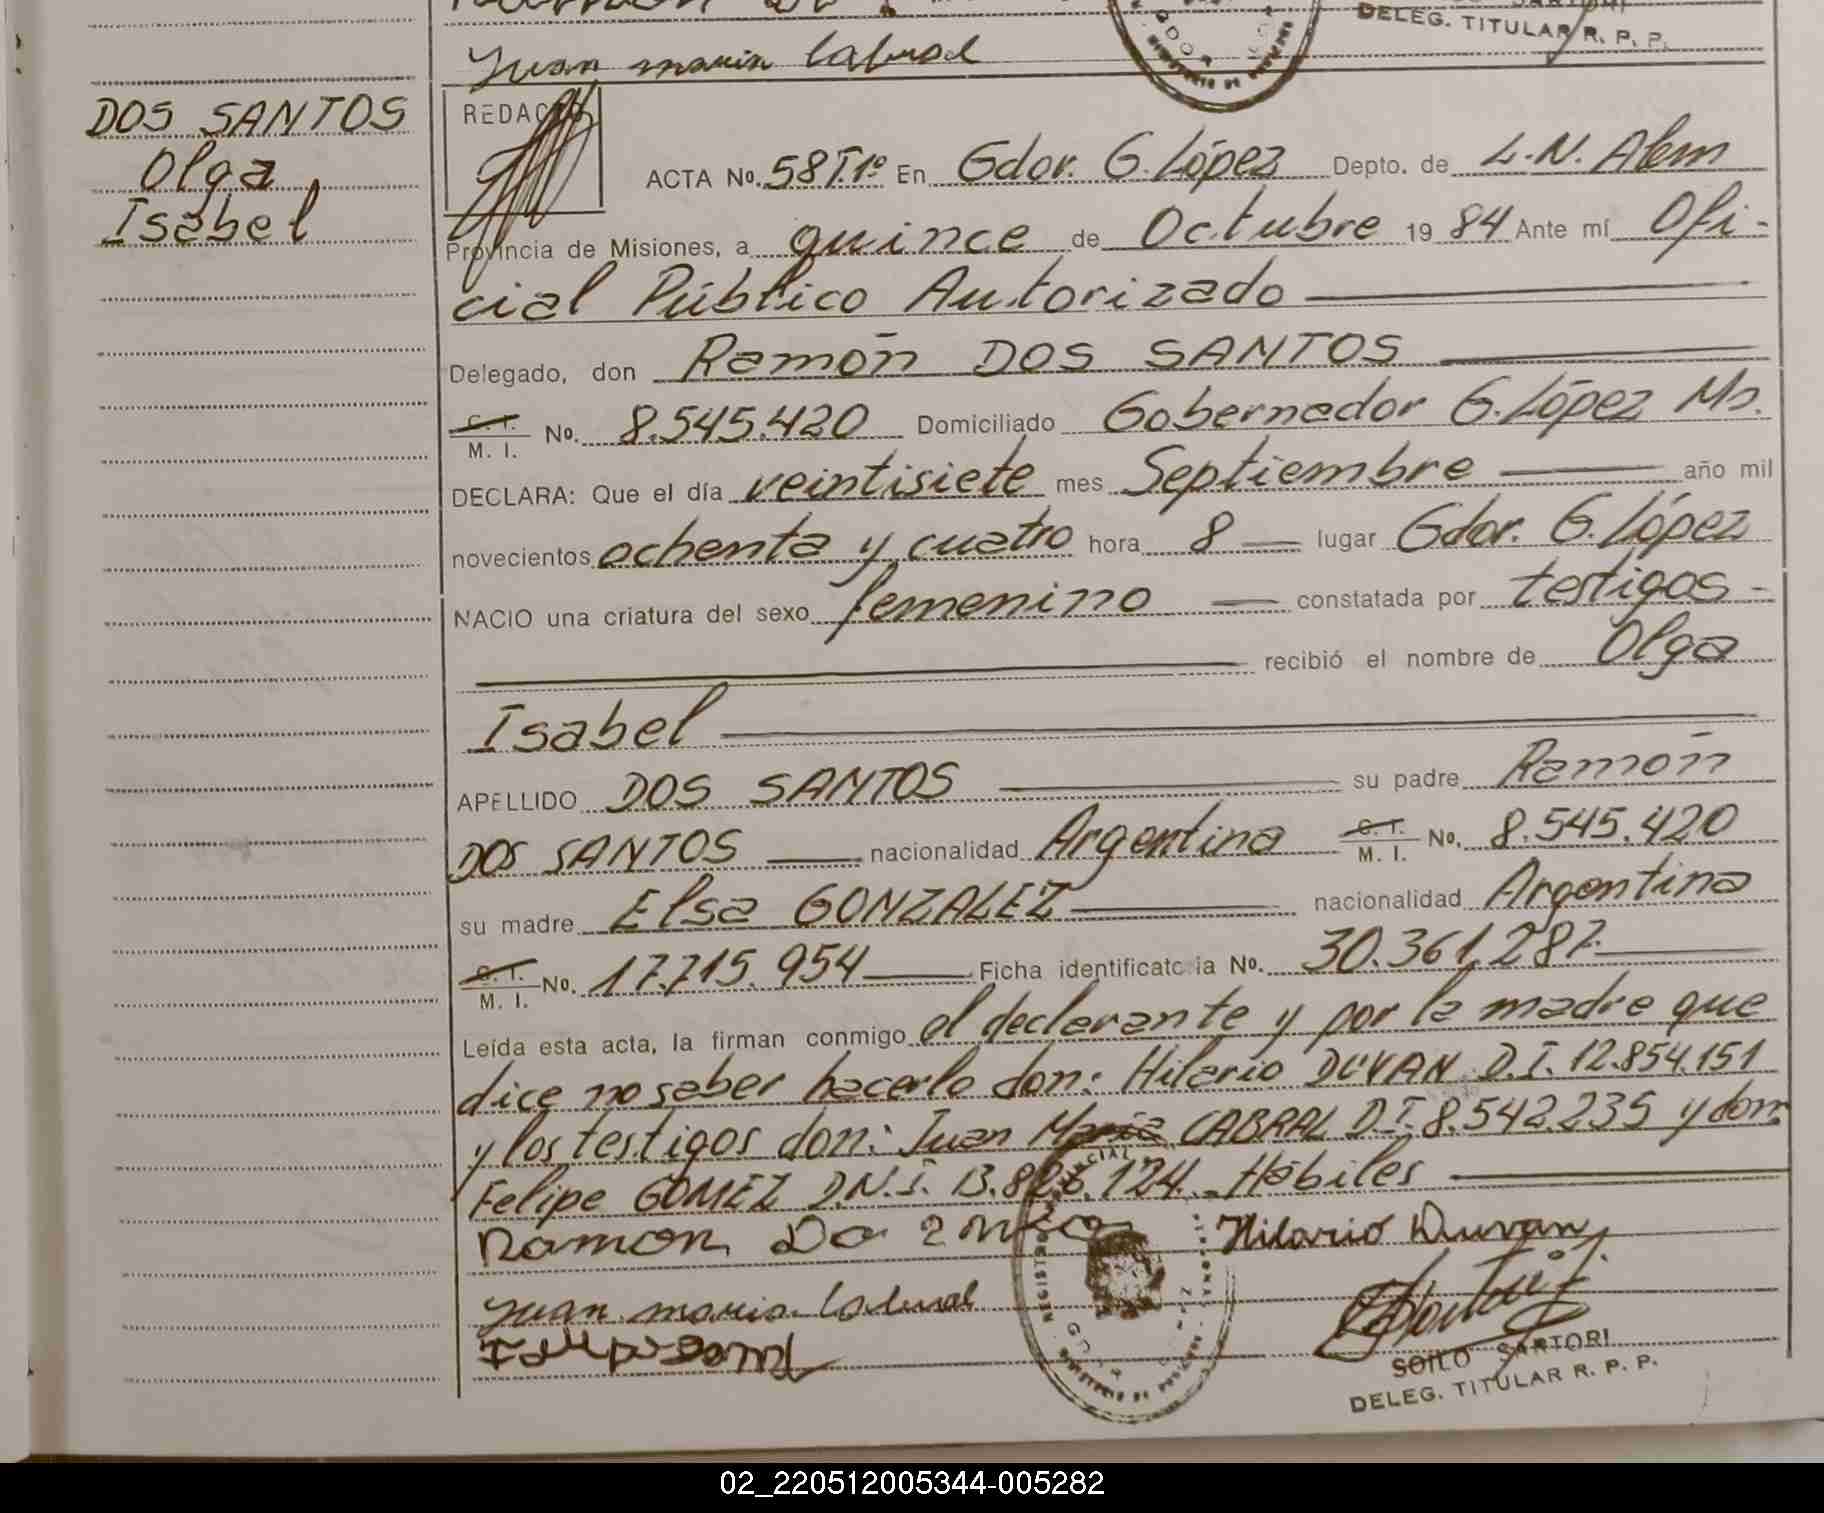 Juan maria Cabral
DELEG. TITULAR R. P. P.
DOS SANTOS
Olga
Isabel
REDACTO
ACTA No. 58 T.1º En Gdor. G. López Depto. de L.N. Alem
Provincia de Misiones, a quince de Octubre 19 84 Ante mí Ofi-
cial Público Autorizado
Delegado, don Ramón DOS SANTOS
C. I.
M. I. No. 8.545.420 Domiciliado Gobernador G. López Ms.
DECLARA: Que el día veintisiete mes Septiembre año mil
novecientos ochenta y cuatro hora 8 lugar Gdor. G. López
NACIO una criatura del sexo femenino constatada por testigos -
recibió el nombre de Olga
Isabel
APELLIDO DOS SANTOS su padre Ramón
DOS SANTOS nacionalidad Argentina C. I. M. I. No. 8.545.420
su madre Elsa GONZALEZ nacionalidad Argentina
C. I.
M. I. No. 17.715.954 Ficha identificatoria No. 30.361.287
Leída esta acta, la firman conmigo el declarante y por la madre que
dice no saber hacerlo don: Hilario DUVAN D.I. 12.854.151
y los testigos don: Juan Maria CABRAL D.I. 8.542.235 y don
Felipe GOMEZ D.N.I. 13.826.124. Hábiles
Ramon Hilario Duvan
Juan maria Cabral
SOILO SARTORI
DELEG. TITULAR R. P. P.
02_220512005344-005282